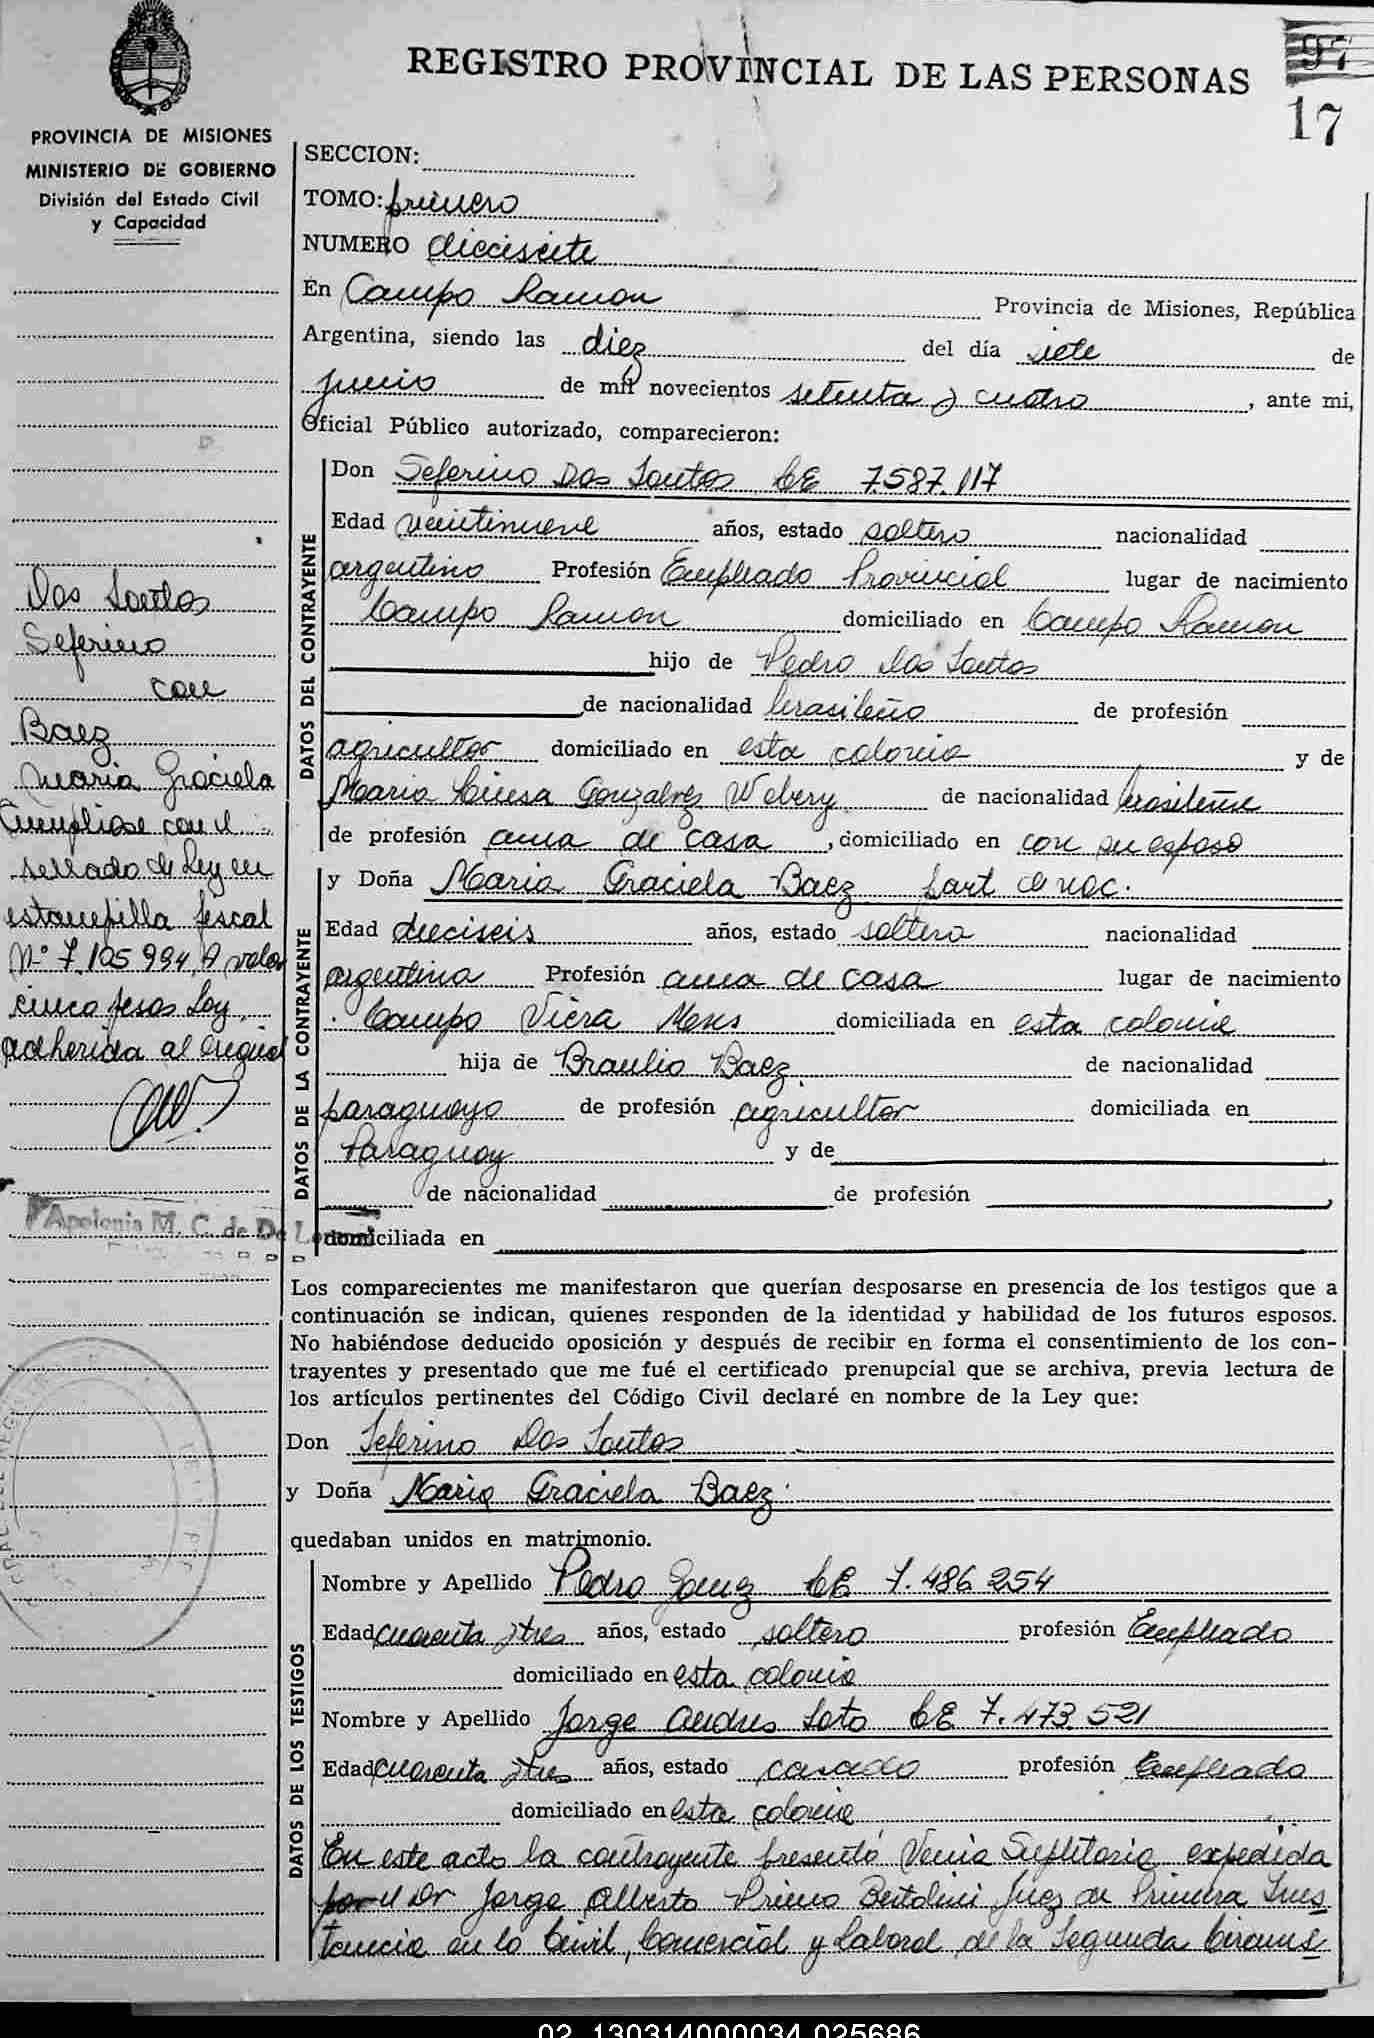 REGISTRO PROVINCIAL DE LAS PERSONAS
97
17
PROVINCIA DE MISIONES
MINISTERIO DE GOBIERNO
División del Estado Civil
y Capacidad
SECCION:
TOMO: primero
NUMERO diecisiete
En Campo Ramon Provincia de Misiones, República
Argentina, siendo las diez del día siete de
junio de mil novecientos setenta y cuatro, ante mi,
Oficial Público autorizado, comparecieron:
DATOS DEL CONTRAYENTE
Don Seferino Dos Santos LE 7.587.117
Edad veintinueve años, estado soltero nacionalidad
argentino Profesión Empleado Provincial lugar de nacimiento
Campo Ramon domiciliado en Campo Ramon
hijo de Pedro Dos Santos
de nacionalidad brasileño de profesión
agricultor domiciliado en esta colonia y de
Maria Luisa Gonzalvez Webery de nacionalidad brasileña
de profesión ama de casa, domiciliado en con su esposo
DATOS DE LA CONTRAYENTE
y Doña Maria Graciela Baez part de nac.
Edad dieciseis años, estado soltera nacionalidad
argentina Profesión ama de casa lugar de nacimiento
Campo Viera Mnes domiciliada en esta colonia
hija de Braulio Baez de nacionalidad
paraguayo de profesión agricultor domiciliada en
Paraguay y de
de nacionalidad de profesión
domiciliada en
Los comparecientes me manifestaron que querían desposarse en presencia de los testigos que a
continuación se indican, quienes responden de la identidad y habilidad de los futuros esposos.
No habiéndose deducido oposición y después de recibir en forma el consentimiento de los con-
trayentes y presentado que me fué el certificado prenupcial que se archiva, previa lectura de
los artículos pertinentes del Código Civil declaré en nombre de la Ley que:
Don Seferino Dos Santos
y Doña Maria Graciela Baez
quedaban unidos en matrimonio.
DATOS DE LOS TESTIGOS
Nombre y Apellido Pedro LE 7.486.254
Edad cuarenta y tres años, estado soltero profesión Empleado
domiciliado en esta colonia
Nombre y Apellido Jorge Andres Soto LE 7.473.521
Edad cuarenta y tres años, estado casado profesión Empleado
domiciliado en esta colonia
En este acto la contrayente presentó Venia Supletoria expedida
por el Dr Jorge Alberto Primo Bertolini Juez de Primera Ins
tancia en lo Civil, Comercial y Laboral de la Segunda Circuns
Dos Santos
Seferino
con
Baez
Maria Graciela
Cumpliose con el
sellado de Ley en
estampilla fiscal
Nº 7.105.994 A valor
cinco pesos Ley,
adherida al original
Apolonia M. C. de De
02 130314000034 025686